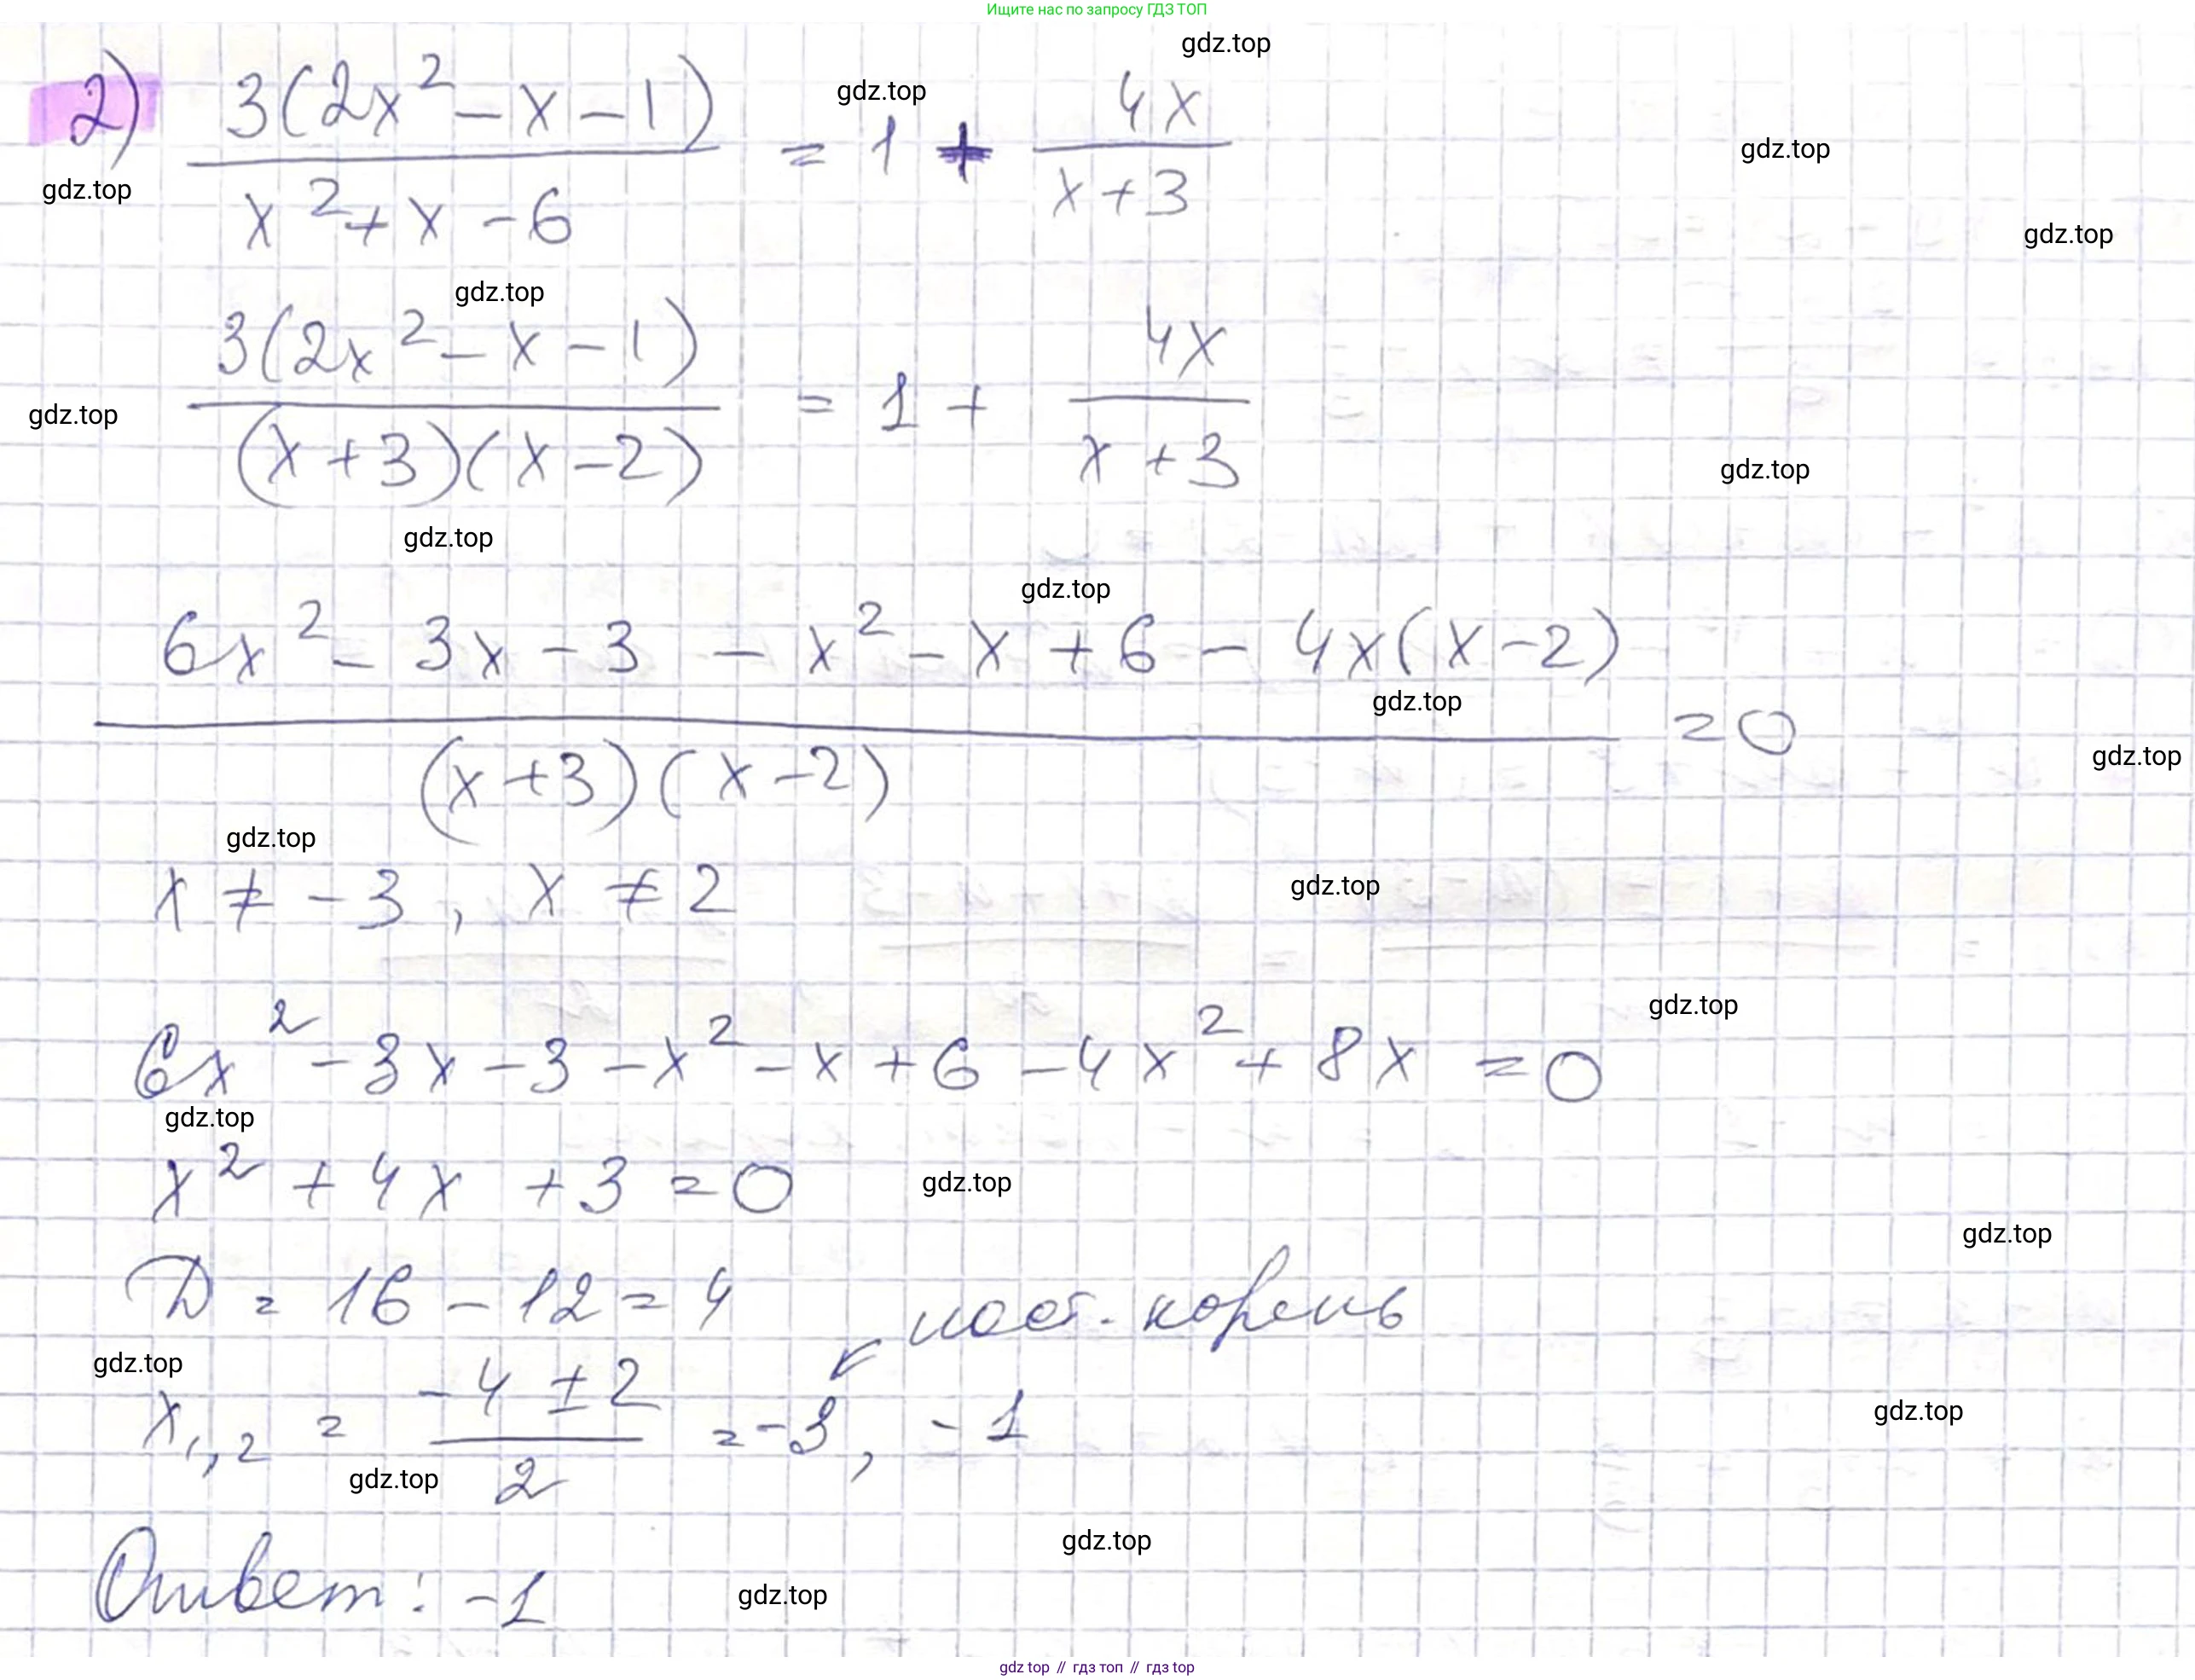 Ищите нас по запросу ГДЗ ТОП
gdz.top
2) 3(2x² - x - 1) / (x² + x - 6) = 1 + 4x / (x + 3)
gdz.top
gdz.top
gdz.top
gdz.top
gdz.top
3(2x² - x - 1) / ((x + 3)(x - 2)) = 1 + 4x / (x + 3)
gdz.top
gdz.top
gdz.top
gdz.top
(6x² - 3x - 3 - x² - x + 6 - 4x(x - 2)) / ((x + 3)(x - 2)) = 0
gdz.top
gdz.top
gdz.top
x ≠ -3, x ≠ 2
gdz.top
gdz.top
6x² - 3x - 3 - x² - x + 6 - 4x² + 8x = 0
gdz.top
x² + 4x + 3 = 0
gdz.top
gdz.top
D = 16 - 12 = 4
пост. корень
gdz.top
x₁,₂ = (-4 ± 2) / 2 = -3, -1
gdz.top
gdz.top
gdz.top
Ответ: -1
gdz.top
gdz top // гдз топ // гдз top